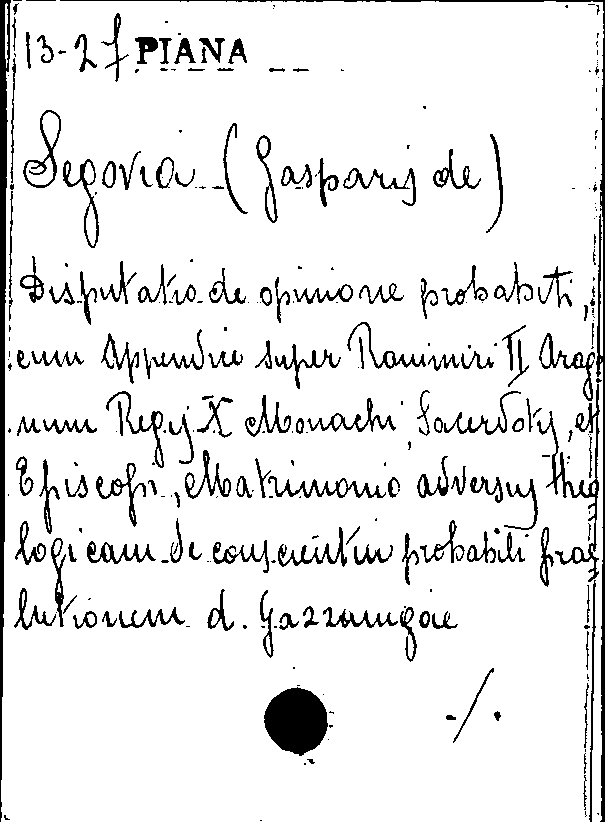 13-27 PIANA
Segovia (Gasparis de)
Disputatio de opinione probabili,
cum Appendice super Ranimiri II Arag
num Regis X Monachi, Sacerdotis, et
Episcopi, Matrimonio adversus theo
logicam de conscientia probabili prae
lutionem d. Gazzanigae
./.